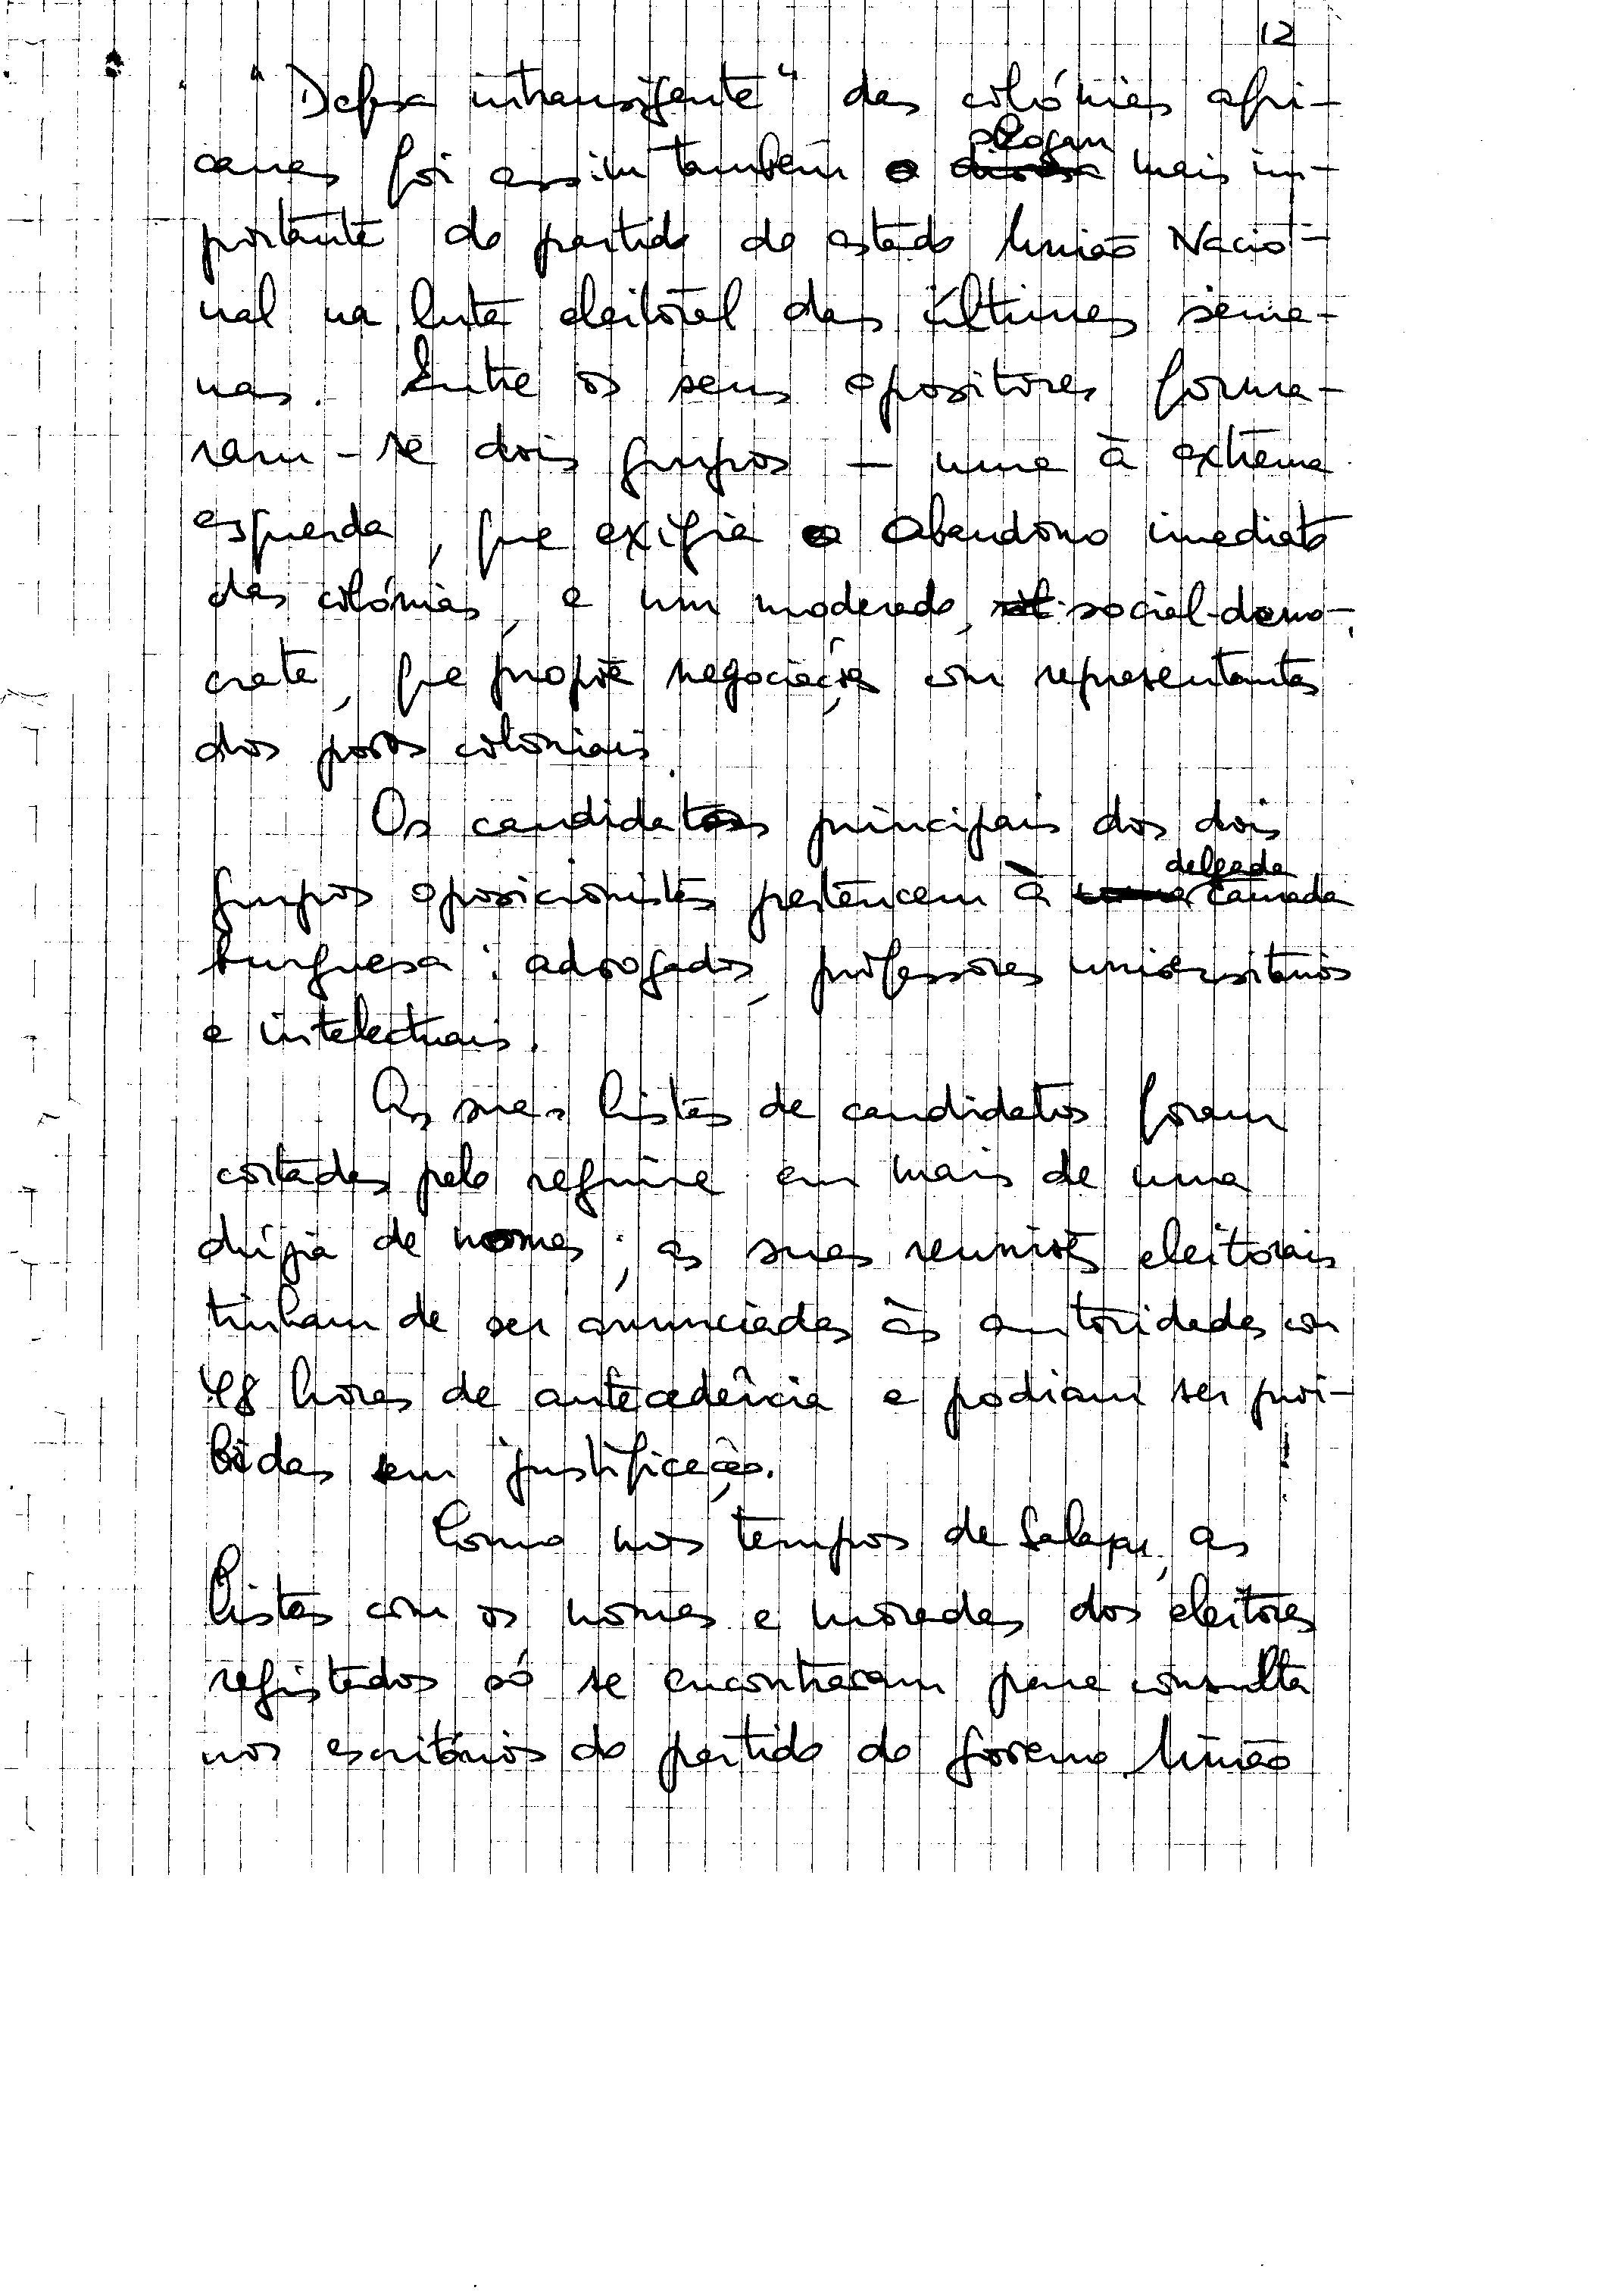 12
"Defesa intransigente" das colónias afri-
canas foi assim também o slogan mais im-
portante do partido do estado União Nacio-
nal na luta eleitoral das últimas sema-
nas. Entre os seus opositores forma-
ram-se dois grupos — uma à extrema
esquerda, que exigia o abandono imediato
das colónias, e um moderado, social-demo-
crata, que propõe negociações com representantes
dos povos coloniais.
Os candidatos principais dos dois
grupos oposicionistas pertencem à delgada camada
burguesa: advogados, professores universitários
e intelectuais.
As suas listas de candidatos foram
cortadas pelo regime em mais de uma
dúzia de nomes; as suas reuniões eleitorais
tinham de ser anunciadas às autoridades com
48 horas de antecedência e podiam ser proi-
bidas sem justificação.
Como nos tempos de Salazar, as
listas com os nomes e moradas dos eleitores
registados só se encontravam para consulta
nos escritórios do partido do governo União